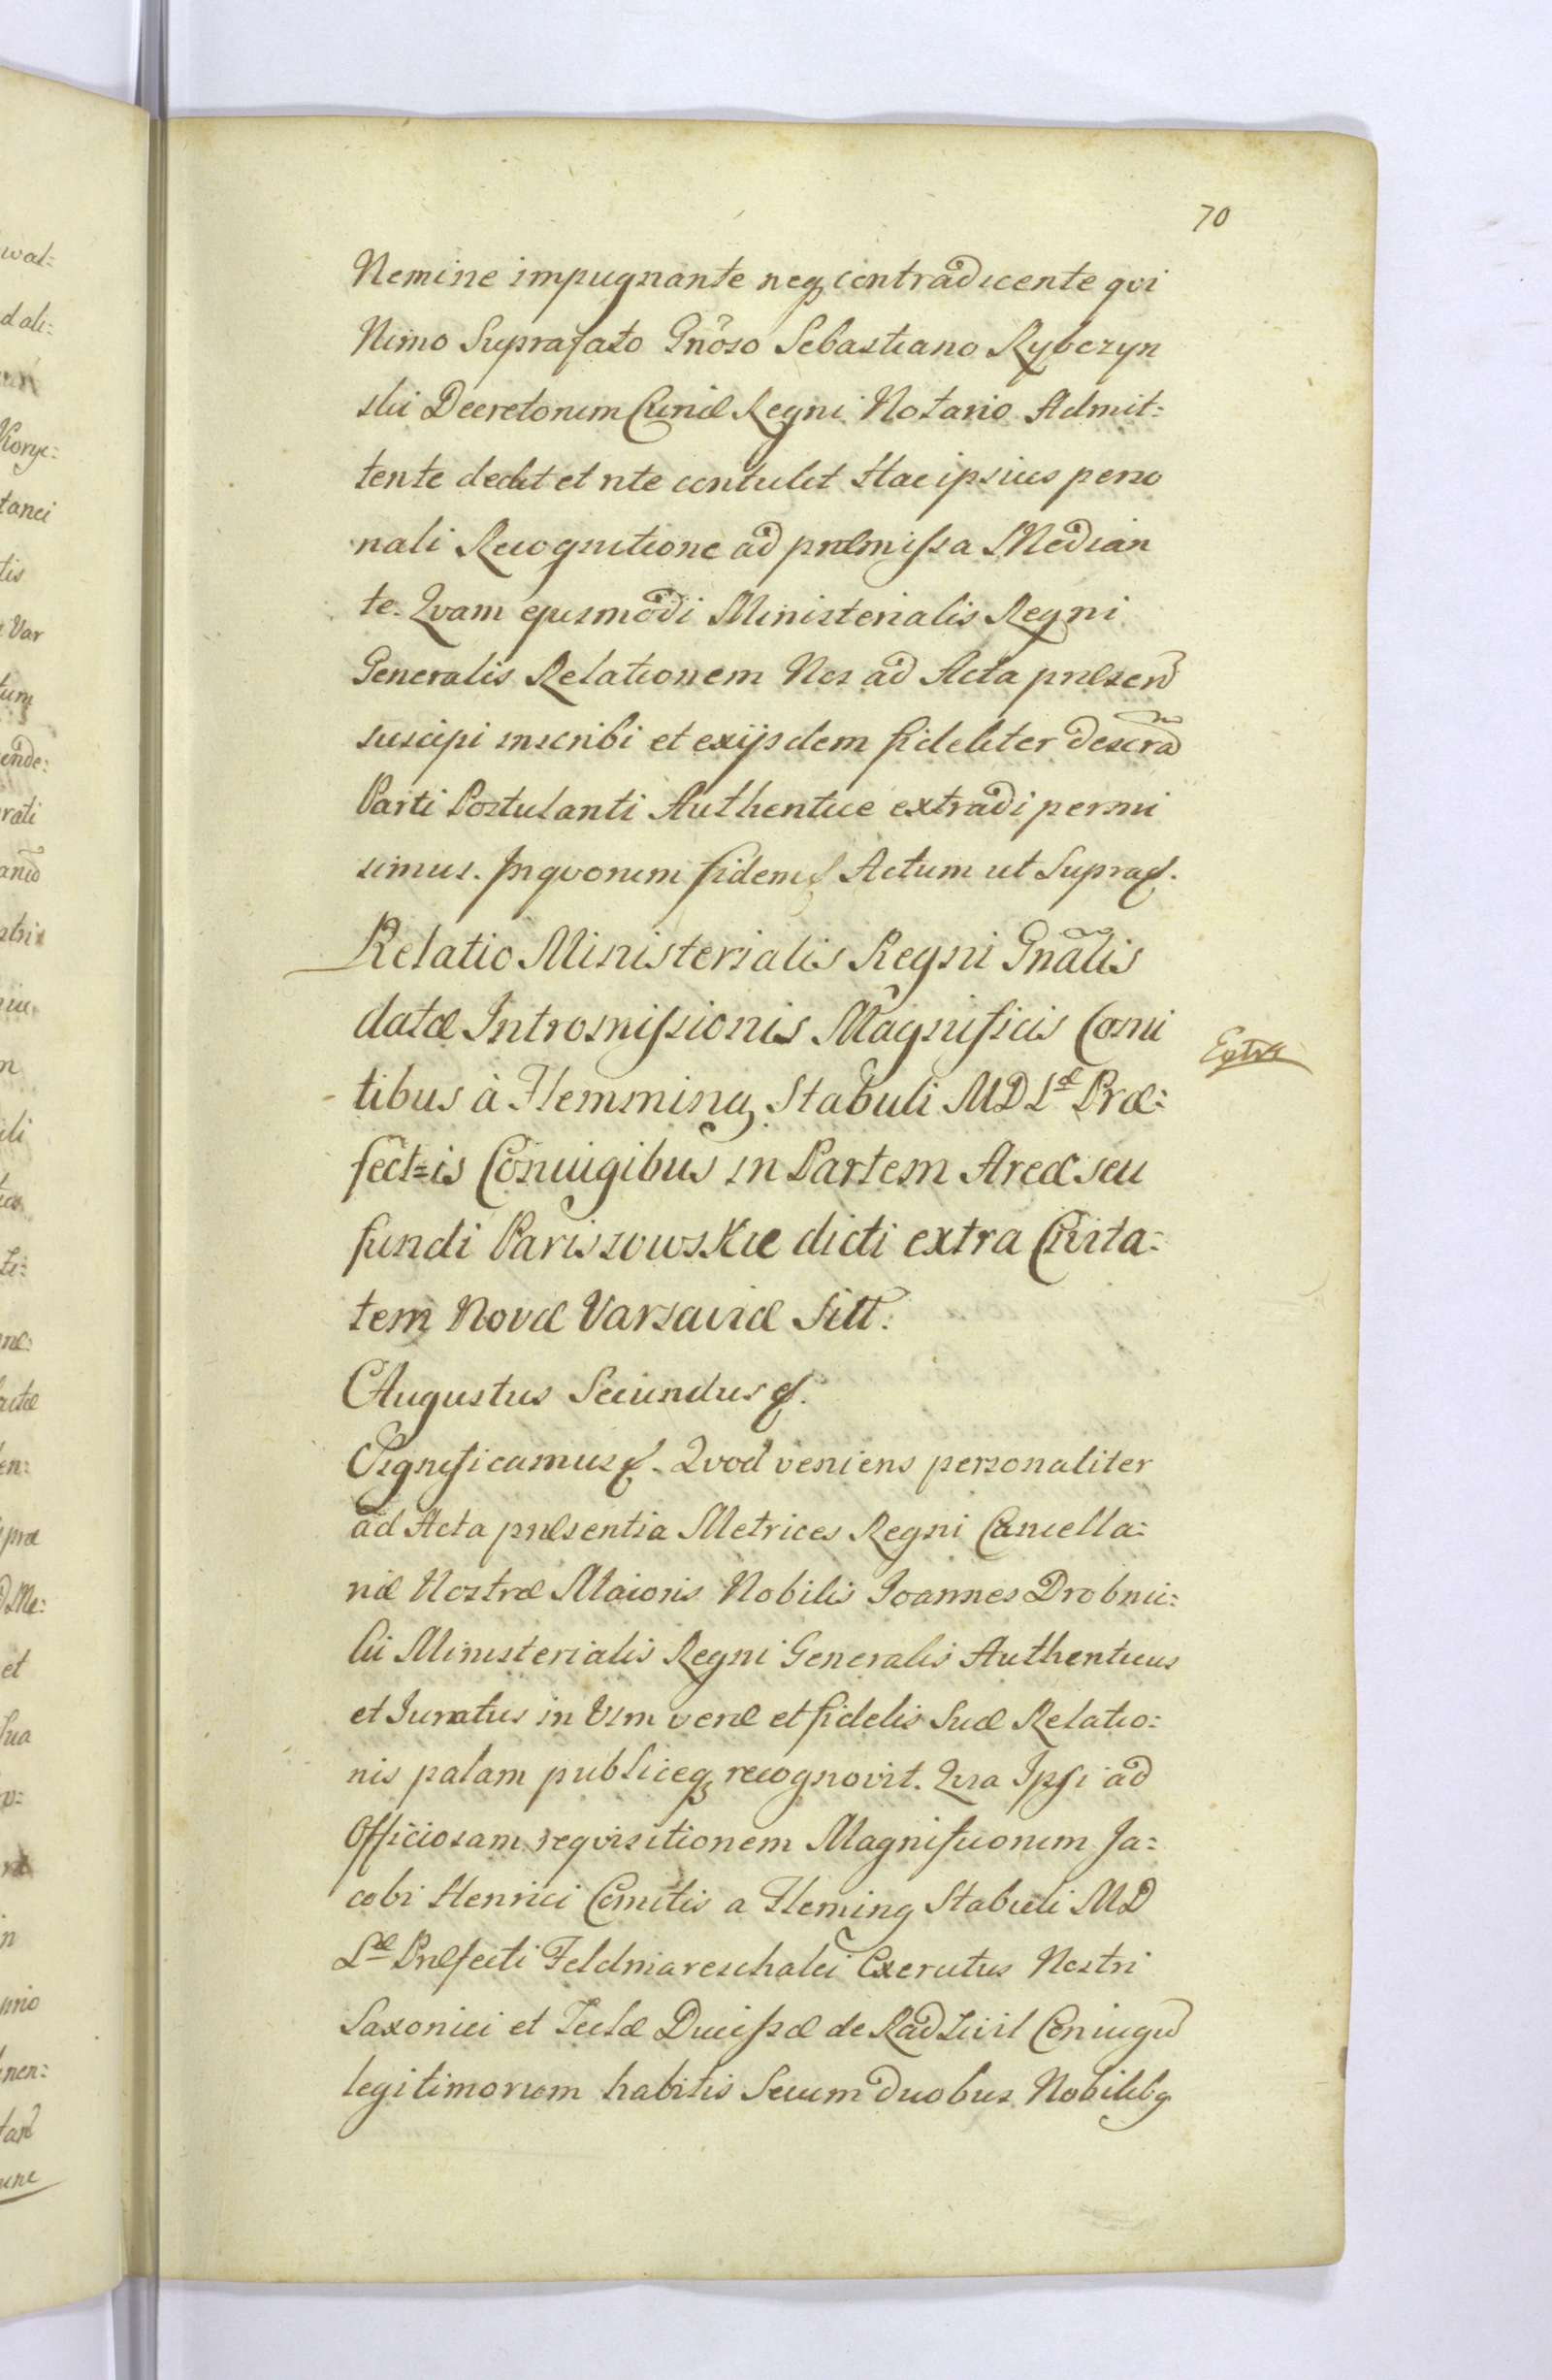 70
Nemine impugnante neq3 contradicente qvi
Nimo Suprafato Gnõso Sebastiano Rybczyn
ski Decretorum Curiæ Regni Notario Admit:
tente dedit et nte contulit Hac ipsius perso
nali Recognitione ad præmissa Median
te. Qvam ejusmodi Ministerialis Regni
Generalis Relationem Nos ad Acta præsen
suscipi inscribi et exijsdem fideliter descrã
Parti Postulanti Authentice extradi permi
simus. In qvorum fidem Actum ut Supra
Relatio Ministerialis Regni Gnãlis
datæ Intromissionis Magnificis Comi
Extra
tibus à Flemming Stabuli MDLæ Præ:
fect=is Coniugibus in Partem Areæ seu
fundi Pariszowskie dicti extra Civita:
tem Novæ Varsaviæ Sitt.
Augustus Secundus
Significamus Qvod veniens personaliter
ad Acta præsentia Metrices Regni Cancella:
riæ Nostræ Maioris Nobilis Joannes Drobnic:
ki Ministerialis Regni Generalis Authenticus
et Iuratus in Vim veræ et fidelis Suæ Relatio:
nis palam publiceq3 recognovit. Qvia Ipse ad
Officiosam reqvisitionem Magnificorum Ja:
cobi Henrici Comitis a Fleming Stabuli MD
Læ Præfecti Feldmareschalci Exercitus Nostri
Saxonici et Teclæ Ducissæ de Radziwil Coniugũ
legitimorum habitis Secum duobus Nobilibq